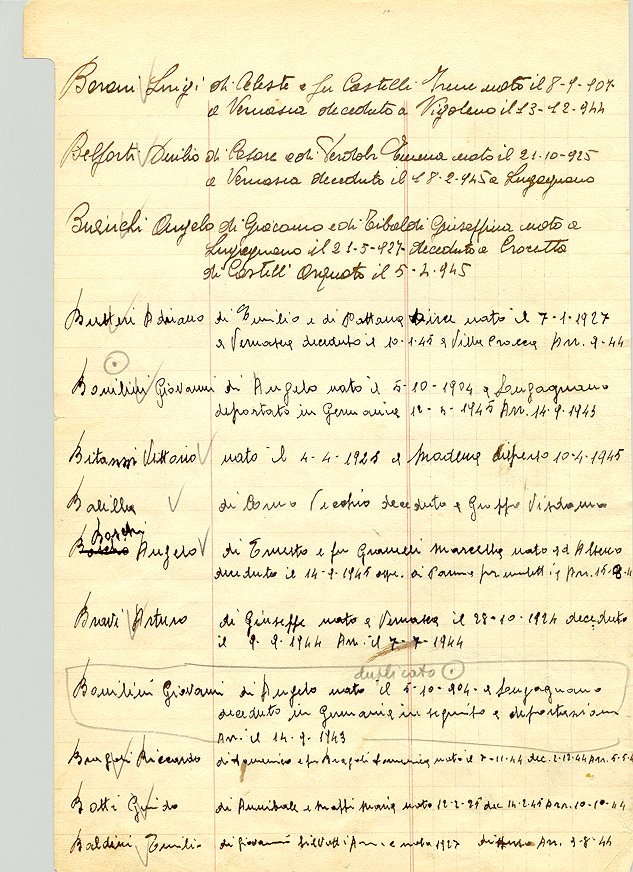 Borani Luigi di Celeste e fu Castelli Irene nato il 8-9-907
a Vernasca deceduto a Vigoleno il 13-12-944
Belforti Duilio di Cesare e di Verdobi Emma nato il 21-10-925
a Vernasca deceduto il 18-2-945 a Lugagnano
Bianchi Angelo di Giacomo e di Tibaldi Giuseffina nato a
Lugagnano il 21-5-927 deceduto a Crocetta
di Castell' Arquato il 5-4-945
Butteri Adriano di Emilio e di Pattana Dirce nato il 7-1-1927
a Vernasca deceduto il 10-1-45 a Villa Crocca Arr. 9-44
Bonilini Giovanni di Angelo nato il 5-10-1904 a Lugagnano
deportato in Germania 12-3-1945 Arr. 14.9.1943
Bitanzi Vittorio nato il 4-4-1925 a Modena disperso 10-4-1945
Balilla di Corno Vecchio deceduto a Groppo Visdomo
Boschi Angelo di Ernesto e fu Marcella nato ad Albareto
deceduto il 14-9-1945 osp. di Parma per Arr. 15-8-4
Bravi Arturo di Giuseffe nato a Vernasca il 28-10-1924 deceduto
il 9-9-1944 Arr. il 7-7-1944
duplicato
Bonilini Giovanni di Angelo nato il 5-10-904 a Lugagnano
deceduto in Germania in seguito a deportazione
Arr. il 14-9-1943
Riccardo di Domenico e fu Domenica nato il 7-11-44 dec. 2-12-44 Arr. 5-5-4
Botti Guido di Annibale e Maffi Maria nato 12-2-25 dec. 14-2-45 Arr. 10-10-44
Baldini Emilio di Giovanni nato 1927 Arr. 3-8-44